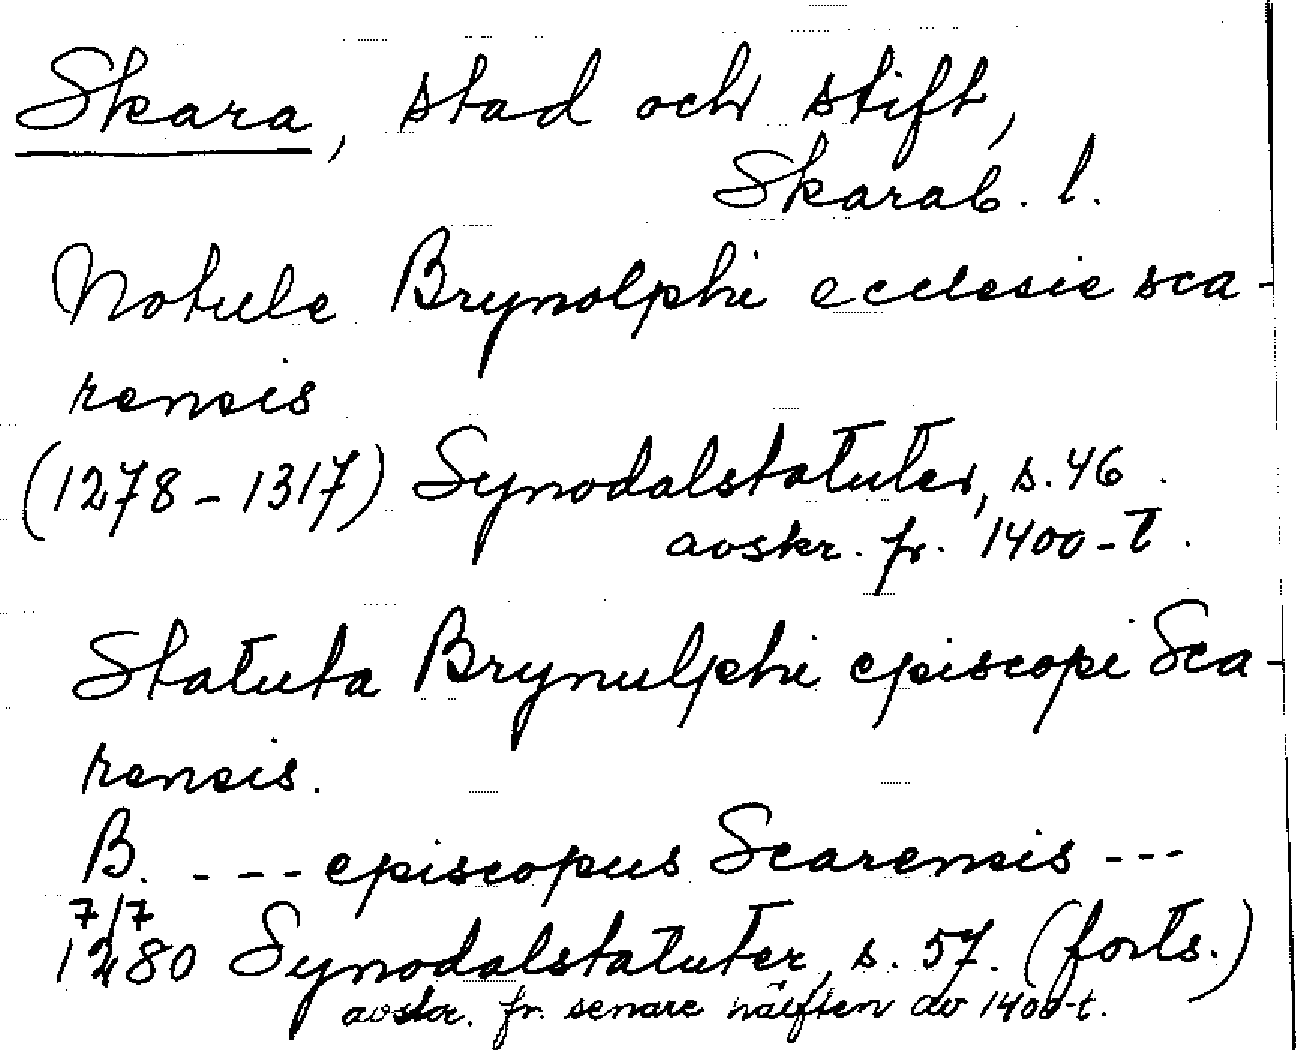 Skara, stad och stift,
Skarab. l.
Notule Brynolphi ecclesie sca-
rensis
(1278-1317) Synodalstatuter, s. 46.
avskr. fr. 1400-t.
Statuta Brynulphi episcopi Sca-
rensis.
B. --- episcopus Scarensis ---
7/7
1280 Synodalstatuter, s. 57. (forts.)
avskr. fr. senare hälften av 1400-t.